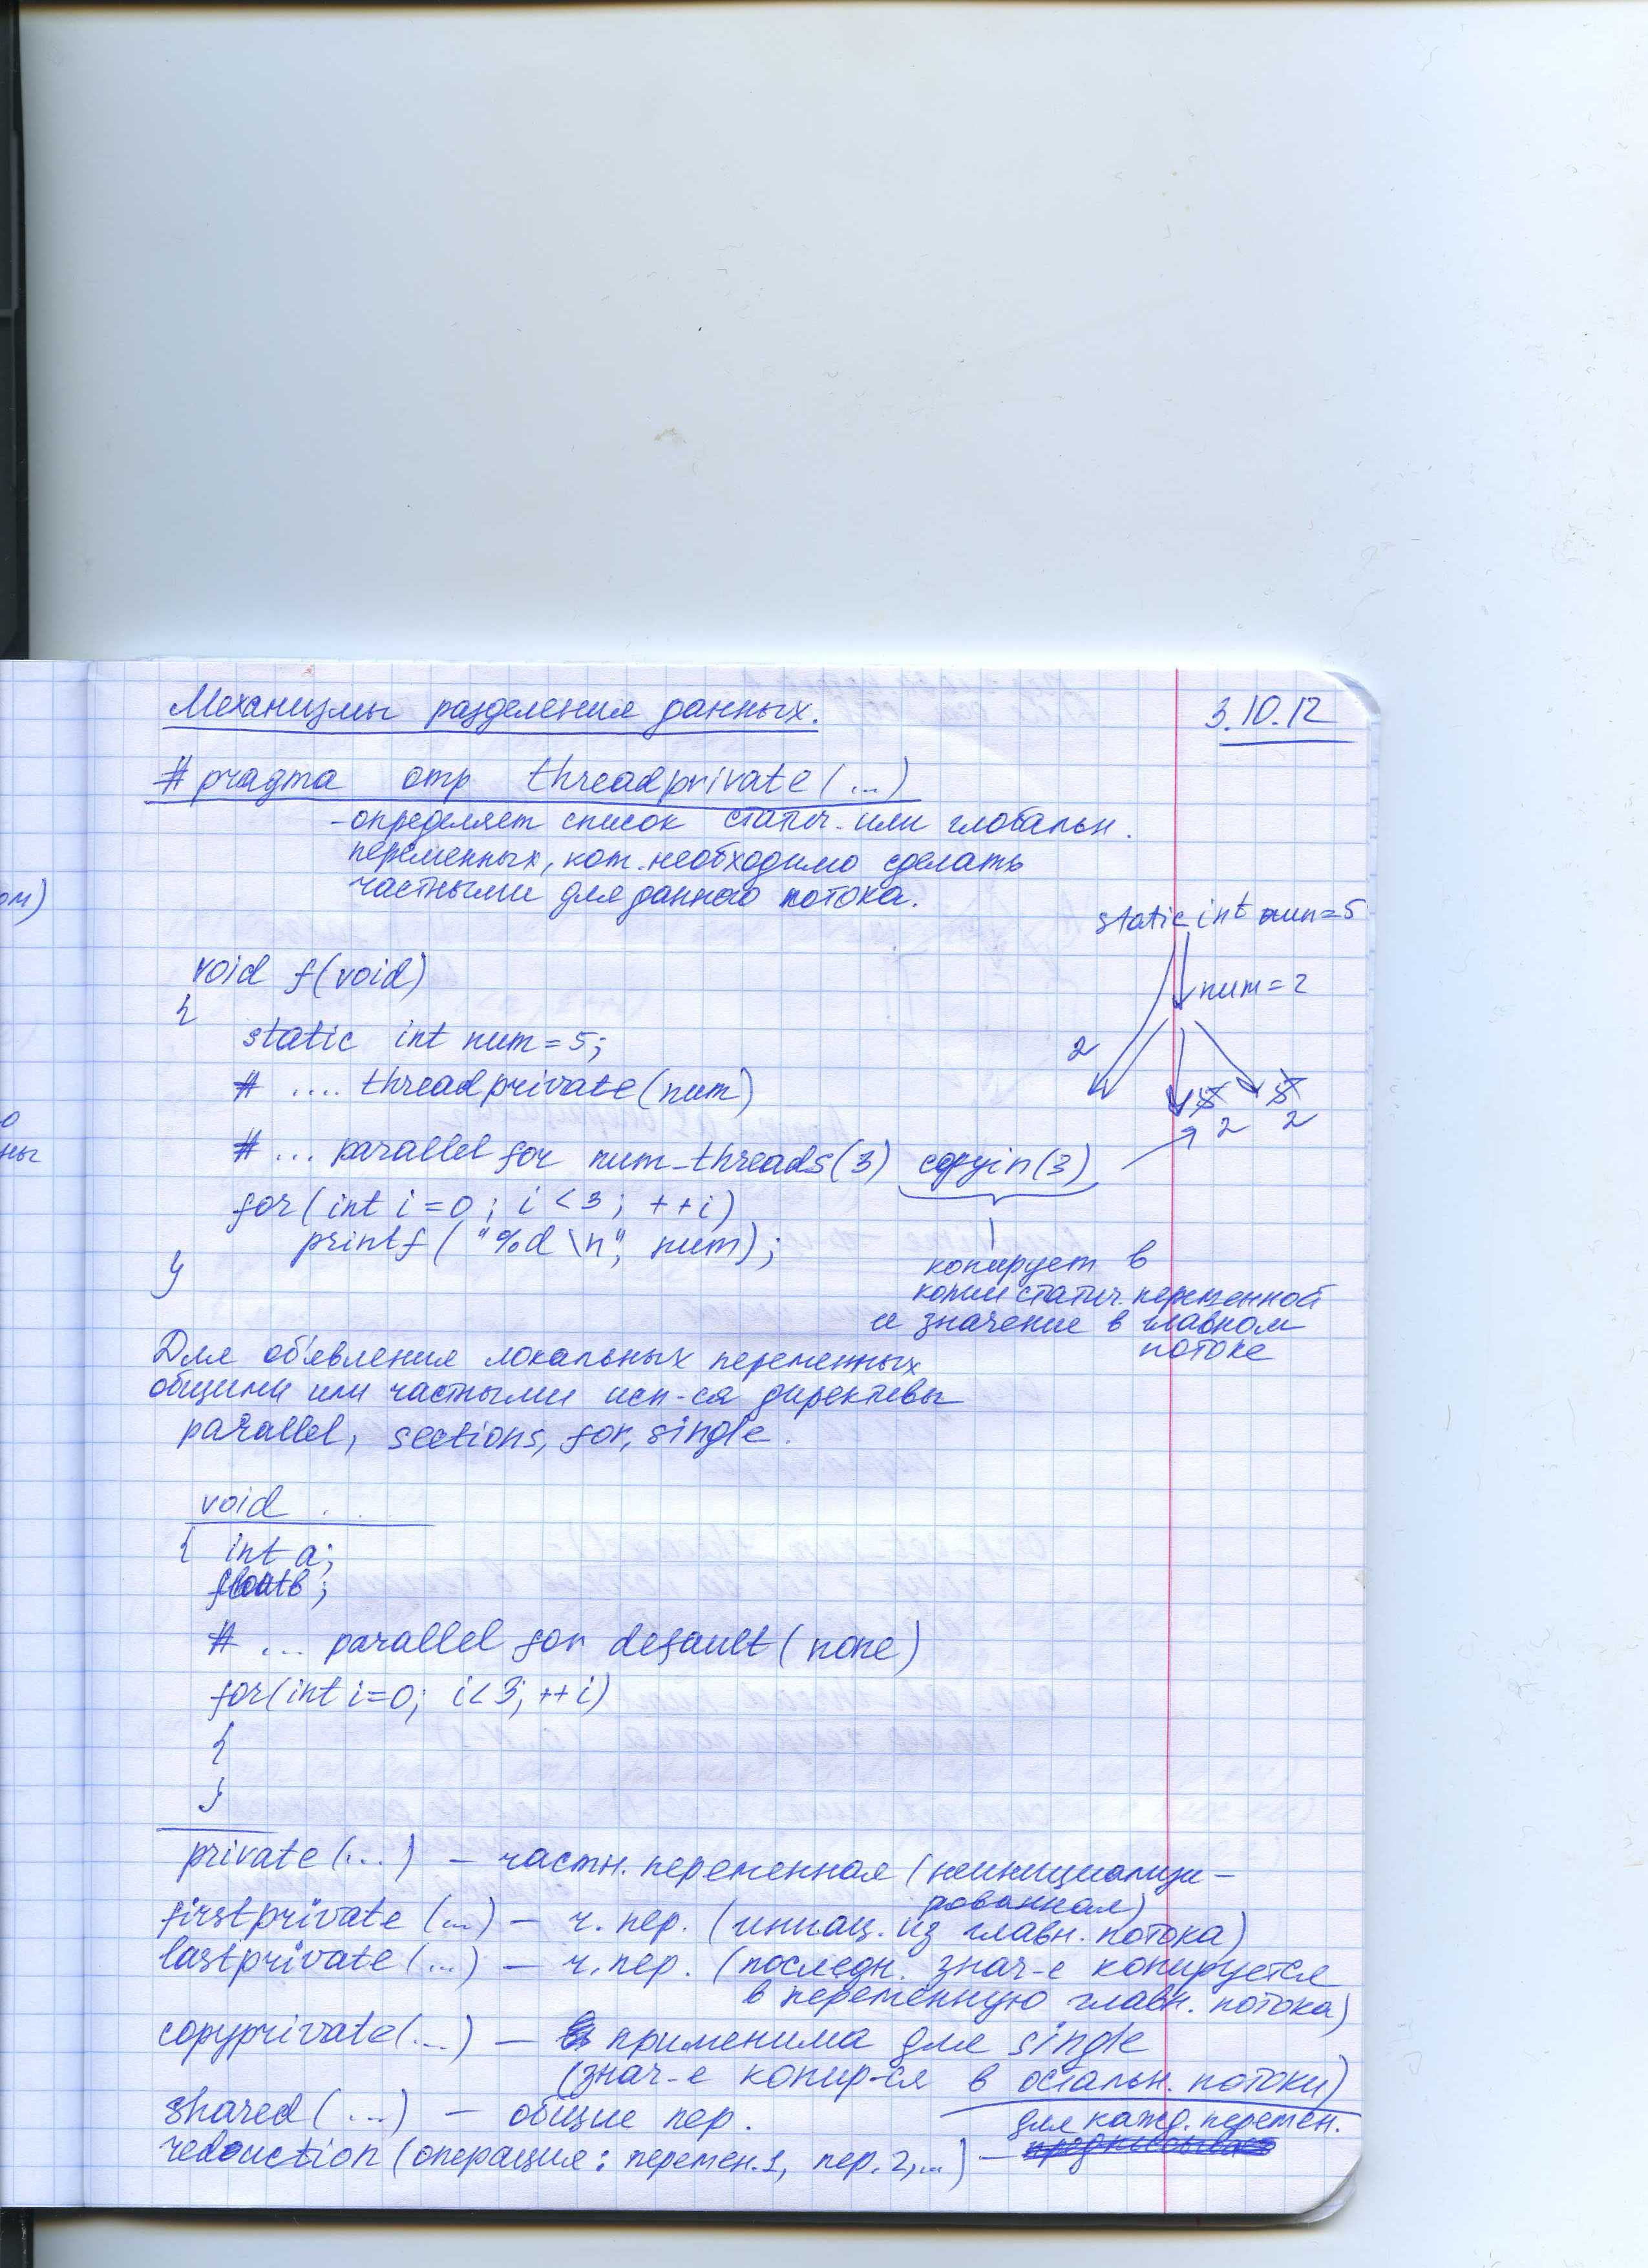 Механизмы разделения данных.
3.10.12
# pragma omp threadprivate(...)
- определяет список статич. или глобальн.
переменных, кот. необходимо сделать
частными для данного потока.
static int num=5
num=2
2
5 5
2 2
void f(void)
{
static int num=5;
# .... threadprivate(num)
# ... parallel for num_threads(3) copyin(3)
for(int i=0; i<3; ++i)
printf("%d\n", num);
}
копирует в
копии статич. переменной
и значение в главном
потоке
Для объявления локальных переменных
общими или частными исп-ся директивы
parallel, sections, for, single.
void ...
{ int a;
float b;
# ... parallel for default(none)
for(int i=0; i<3; ++i)
{
}
private(...) – частн. переменная (неинициализи-
рованная)
firstprivate(...) – ч. пер. (инициац. из главн. потока)
lastprivate(...) – ч. пер. (последн. знач-е копируется
в переменную главн. потока)
copyprivate(...) – применима для single
(знач-е копир-ся в остальн. потоки)
shared(...) – общие пер.
для кажд. перемен.
reduction(операция: перемен.1, пер.2,...) –